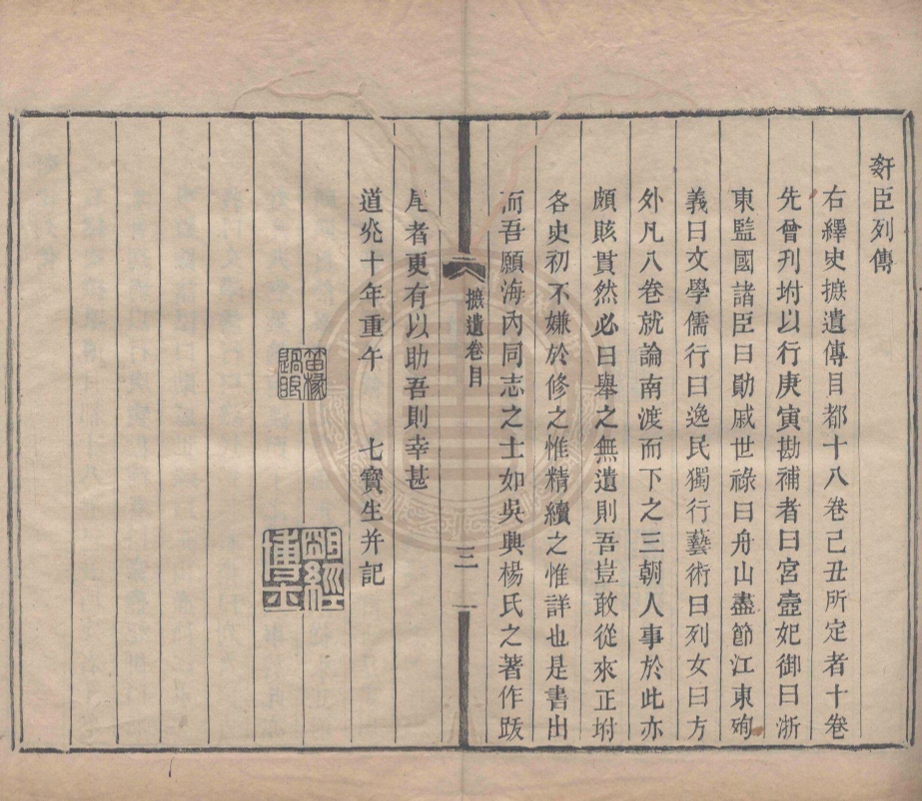 姧臣列傳
右繹史摭遺傳目都十八卷己丑所定者十卷
先曾刊坿以行庚寅勘補者曰宮壼妃御曰浙
東監國諸臣曰勛戚世祿曰舟山盡節江東殉
義曰文學儒行曰逸民獨行藝術曰列女曰方
外凡八卷就論南渡而下之三朝人事於此亦
頗賅貫然必曰舉之無遺則吾豈敢從來正坿
各史初不嫌於修之惟精續之惟詳也是書出
而吾願海內同志之士如吳興楊氏之著作跋
摭遺卷目
三
尾者更有以助吾則幸甚
道光十年重午　七寶生并記
過眼